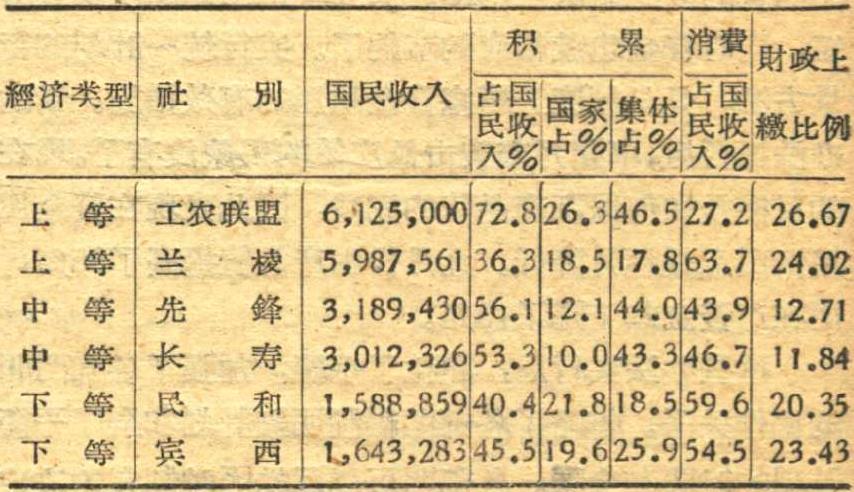 經济类型 社別 国民收入 积累 消費 財政上繳比例
占国民收入% 国家占% 集体占% 占国民收入%
上等 工农联盟 6,125,000 72.8 26.3 46.5 27.2 26.67
上等 兰棱 5,987,561 36.3 18.5 17.8 63.7 24.02
中等 先鋒 3,189,430 56.1 12.1 44.0 43.9 12.71
中等 长寿 3,012,326 53.3 10.0 43.3 46.7 11.84
下等 民和 1,588,859 40.4 21.8 18.5 59.6 20.35
下等 宾西 1,643,283 45.5 19.6 25.9 54.5 23.43